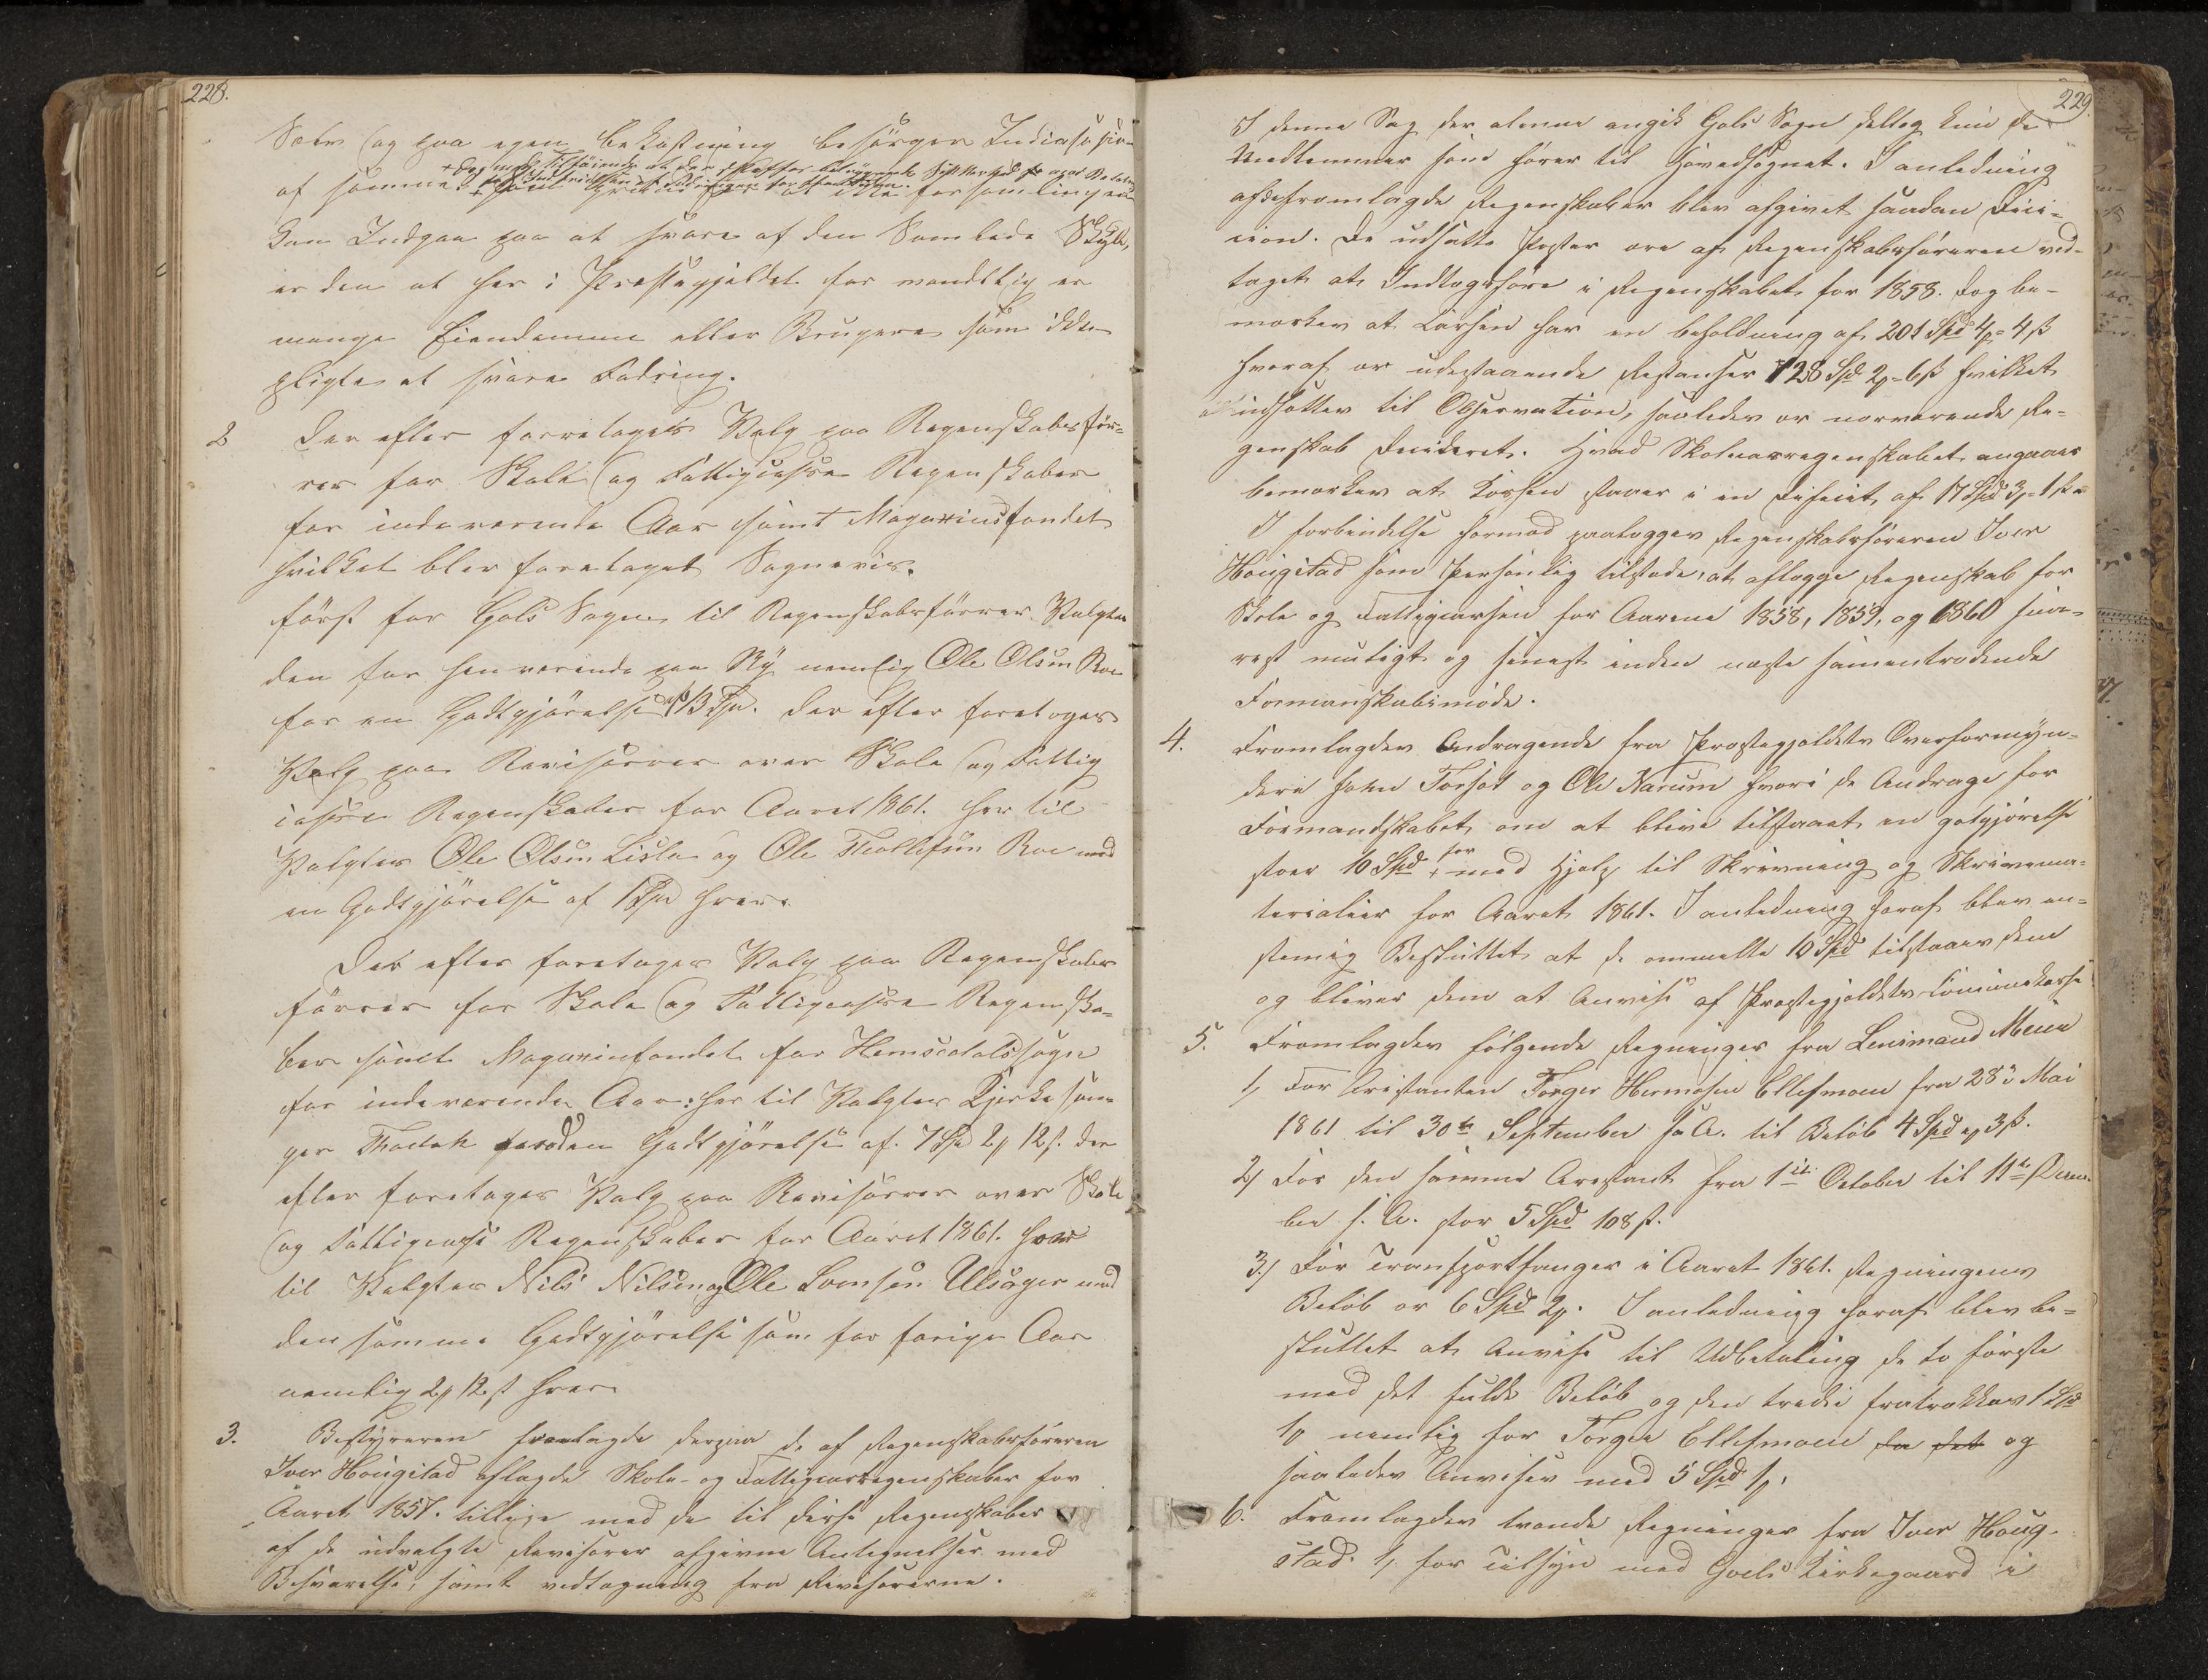 228.
Sølv og paa egen bekostning besørger Indcasse
af samme. + Dog med Tilføiende at der
som Grund for at ikke forsamlingen
kan Indgaa paa at svare af den Samlede Skyld,
er den at her i Præstegjeldet for mandtlig er
mange Eiendomme eller Brugere som ikke
pligter at svare Fodring.
2 Der efter foretages Valg paa Regenskabsfør-
rer for Skole og Fattigcasse Regenskaber
for indeværende Aar samt Magazinsfondet
hvilket blev foretaget Sognevis.
først for Gols Sogn, til Regenskabsførrer Valgtes
den før henværende paa Ny nemlig Ole Olsen Roe
for en Godtgjørelse af 13 Spd. Der efter foretoges
Valg paa Revisorer over Skole og Fattig
casse Regenskaber for Aaret 1861. her til
Valgtes Ole Olsen Lisla og Ole Thollefsen Roe med
en Godtgjørelse af 1 Spd hver.
Der efter foretages Valg paa Regenskabs
førrer for Skole og Fattigcasse Regenska-
ber samt Magazinfondet for Hemsedals sogn
for indeværende Aar: her til Valgtes Kjerkesan-
ger Flaatah for den Godtgjørelse af 7 Spd 2 12 s. Der
efter foretages Valg paa Revisorer over Skole
og Fattigcasse Regenskaber for Aaret 1861. her
til Valgtes Nils Nilsen og Ole Svensen Ulsager med
den samme Godtgjørelse som for forige Aar
nemlig 2 12 s hver
3. Bestyreren fremlagde derpaa de af Regenskabsføreren
Iver Hougstad aflagde Skole- og Fattigcasseregenskaber for
Aaret 1857. tillige med de til disse Regenskaber
af de udvalgte Revisorer afgivne Antegnelser med
Besvarelse, samt vedtegning fra Revisorerne.
229.
I denne Sag der alene angik Gols Sogn deltog kun de
Medlemmer som hører til Hovedsognet. I anledning
af de fremlagde Regenskaber blev afgivet saadan Deci-
cion. De udsatte Poster ere af Regenskabsføreren ved-
taget at Indtægtsføre i Regenskabet for 1858. Dog be-
mærkes at Kassen har en beholdning af 201 Spd 4 4 s
hvoraf er udestaaende Restanser 128 Spd 2 6 s hvilket
udsættes til Observation, saaledes er nærværende Re-
genskab Decideret. Hvad Skolecasseregenskabet angaaer
bemærkes at Kassen staaer i en Deficit af 17 Spd 3 1 s
I forbindelse hermed paalægges Regenskabsføreren Iver
Hougstad som Personlig tilstede, at aflægge Regenskab for
Skole og Fattigcassen for Aarene 1858, 1859, og 1860 sna-
rest muligt og senest inden næste sammentrædende
Formanskabsmøde.
4. Fremlagdes Andragende fra Præstegjeldets Overformyn-
deri John Torsot og Ole Narum hvori de Andrage for
Formandskabet om at blive tilstaaet en gotgjørelse
stor 10 Spd for med Hjelp til Skrivning og Skrivema-
terialier for Aaret 1861. I anledning heraf blev en-
stemig Besluttet at de ommeldte 10 Spd tilstaaes dem
og bliver dem at Anvise af Præstegjeldets Communekasse
5. Fremlagdes følgende Regninger fra Lensmand Meier
1, For Arestanten Torger Hermosen Ellefsmoen fra 28de Mai
1861 til 30te September s. A. til Beløb 4 Spd 3 s.
2, For den samme Arestant fra 1ste October til 11te Decem-
ber s. A. stor 5 Spd 108 s.
3.) For Transportfanger i Aaret 1861. Regningens
Beløb er 6 Spd 2. I anledning heraf blev be-
sluttet at Anvise til Udbetaling de to første
med det fulde Beløb og den tredie fratrækkes 1 Spd
1 nemlig for Torger Ellefsmoen da det og
saaledes Anvises med 5 Spd 1.
6. Fremlagdes tvende Regninger fra Iver Houg-
stad. 1, for Tilsyn med Goels Kirkegaard i